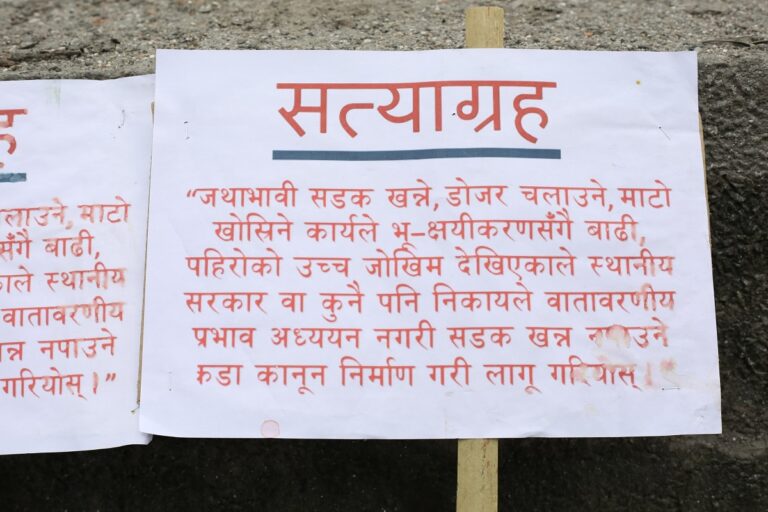 सत्याग्रह
“जथाभावी सडक खन्ने, डोजर चलाउने, माटो
खोस्रिने कार्यले भू-क्षयीकरणसँगै बाढी,
पहिरोको उच्च जोखिम देखिएकाले स्थानीय
सरकार वा कुनै पनि निकायले वातावरणीय
प्रभाव अध्ययन नगरी सडक खन्न नपाउने
कडा कानून निर्माण गरी लागू गरियोस् ।”
ह
चलाउने, माटो
सँगै बाढी,
काले स्थानीय
वातावरणीय
नपाउने
गरियोस् ।”